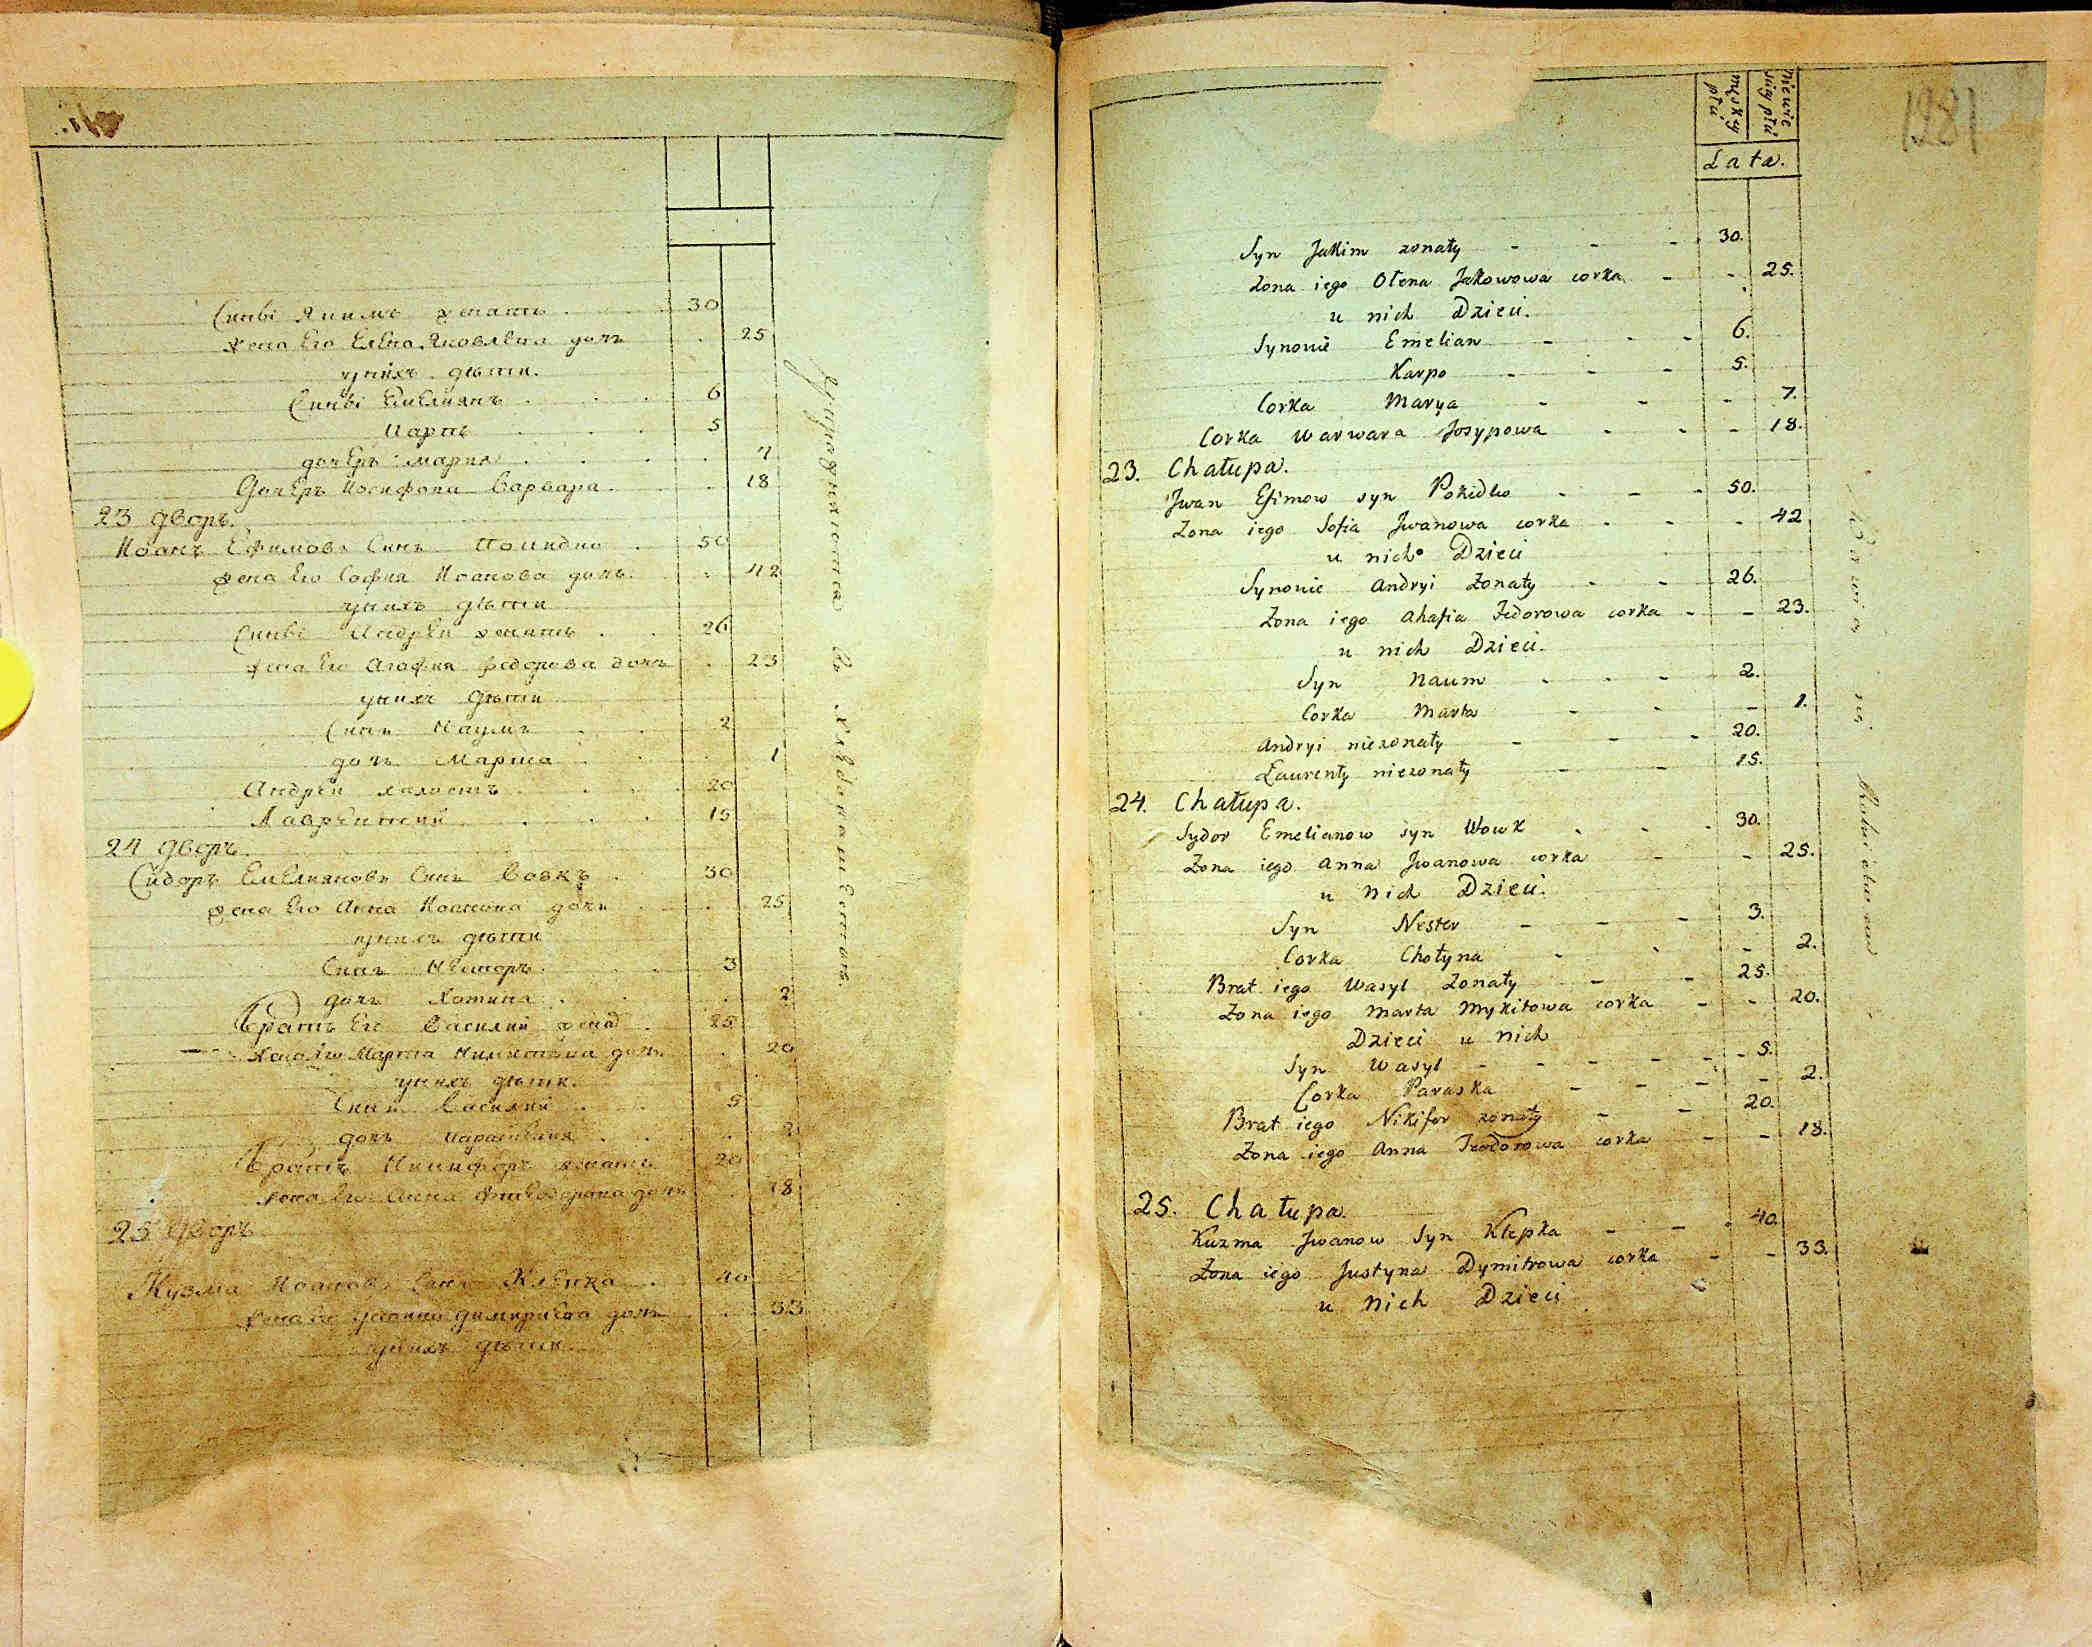 Синъ Якимъ женатъ 30
жена Его Елена Яковлева дочъ 25
унихъ дѣти.
Синъ Емелиянъ 6
Карпъ 5
дочеръ Мария 7
Дочеръ Иосифова Варвара 18
23 Дворъ.
Иоанъ Ефимовъ Синъ Покидко 50
жена Его София Иоанова дочъ 42
унихъ дѣти
Андрей женатъ 26
жена Его Агафия Федорова дочъ 23
унихъ дѣти
Синъ Наумъ 2
дочъ Марта 1
Андрей холостъ 20
Лаврентий 15
24 Дворъ.
Сидоръ Емелияновъ Синъ Вовкъ 30
жена Его Анна Иоанова дочъ 25
унихъ дѣти
Синъ Несторъ 3
дочъ Хотина 2
Братъ Его Василий женат 25
жена Его Марта Никитина дочъ 20
унихъ дѣти.
Синъ Василий 5
дочъ 2
Братъ Никифоръ женатъ 20
жена Его Анна дочъ 18
25 Дворъ
Кузма Иоановъ Синъ Клепка 40
жена Его дочъ 33
унихъ дѣти
męskiy płci
niewieściey płci
Lata.
1281
Syn Jakim zonaty 30.
Zona iego Ołena Jakowowa corka 25.
u nich Dzieci.
Synowie Emelian 6.
Karpo 5.
Corka Marya 7.
Corka Warwara Josypowa 18.
23. Chałupa.
Jwan Efimow syn Pokidko 50.
Zona iego Sofia Jwanowa corka 42
u nich Dzieci
Synowie Andryi Zonaty 26.
Zona iego Ahafia Fedorowa corka 23.
u nich Dzieci.
Syn Naum 2.
Corka Marta 1.
Andryi niezonaty 20.
Laurenty niezonaty 15.
24. Chałupa.
Sydor Emelianow syn Wowk 30.
Zona iego Anna Jwanowa corka 25.
u nich Dzieci.
Syn Nestor 3.
Corka Chotyna 2.
Brat iego Wasyl Zonaty 25.
Zona iego Marta Mykitowa corka 20.
Dzieci u nich
Syn Wasyl 5.
Corka Paraska 2.
Brat iego Nikifor zonaty 20.
Zona iego Anna Teodorowa corka 18.
25. Chałupa.
Kuzma Jwanow Syn Klepka 40.
Zona iego Justyna Dymitrowa corka 33.
u nich Dzieci